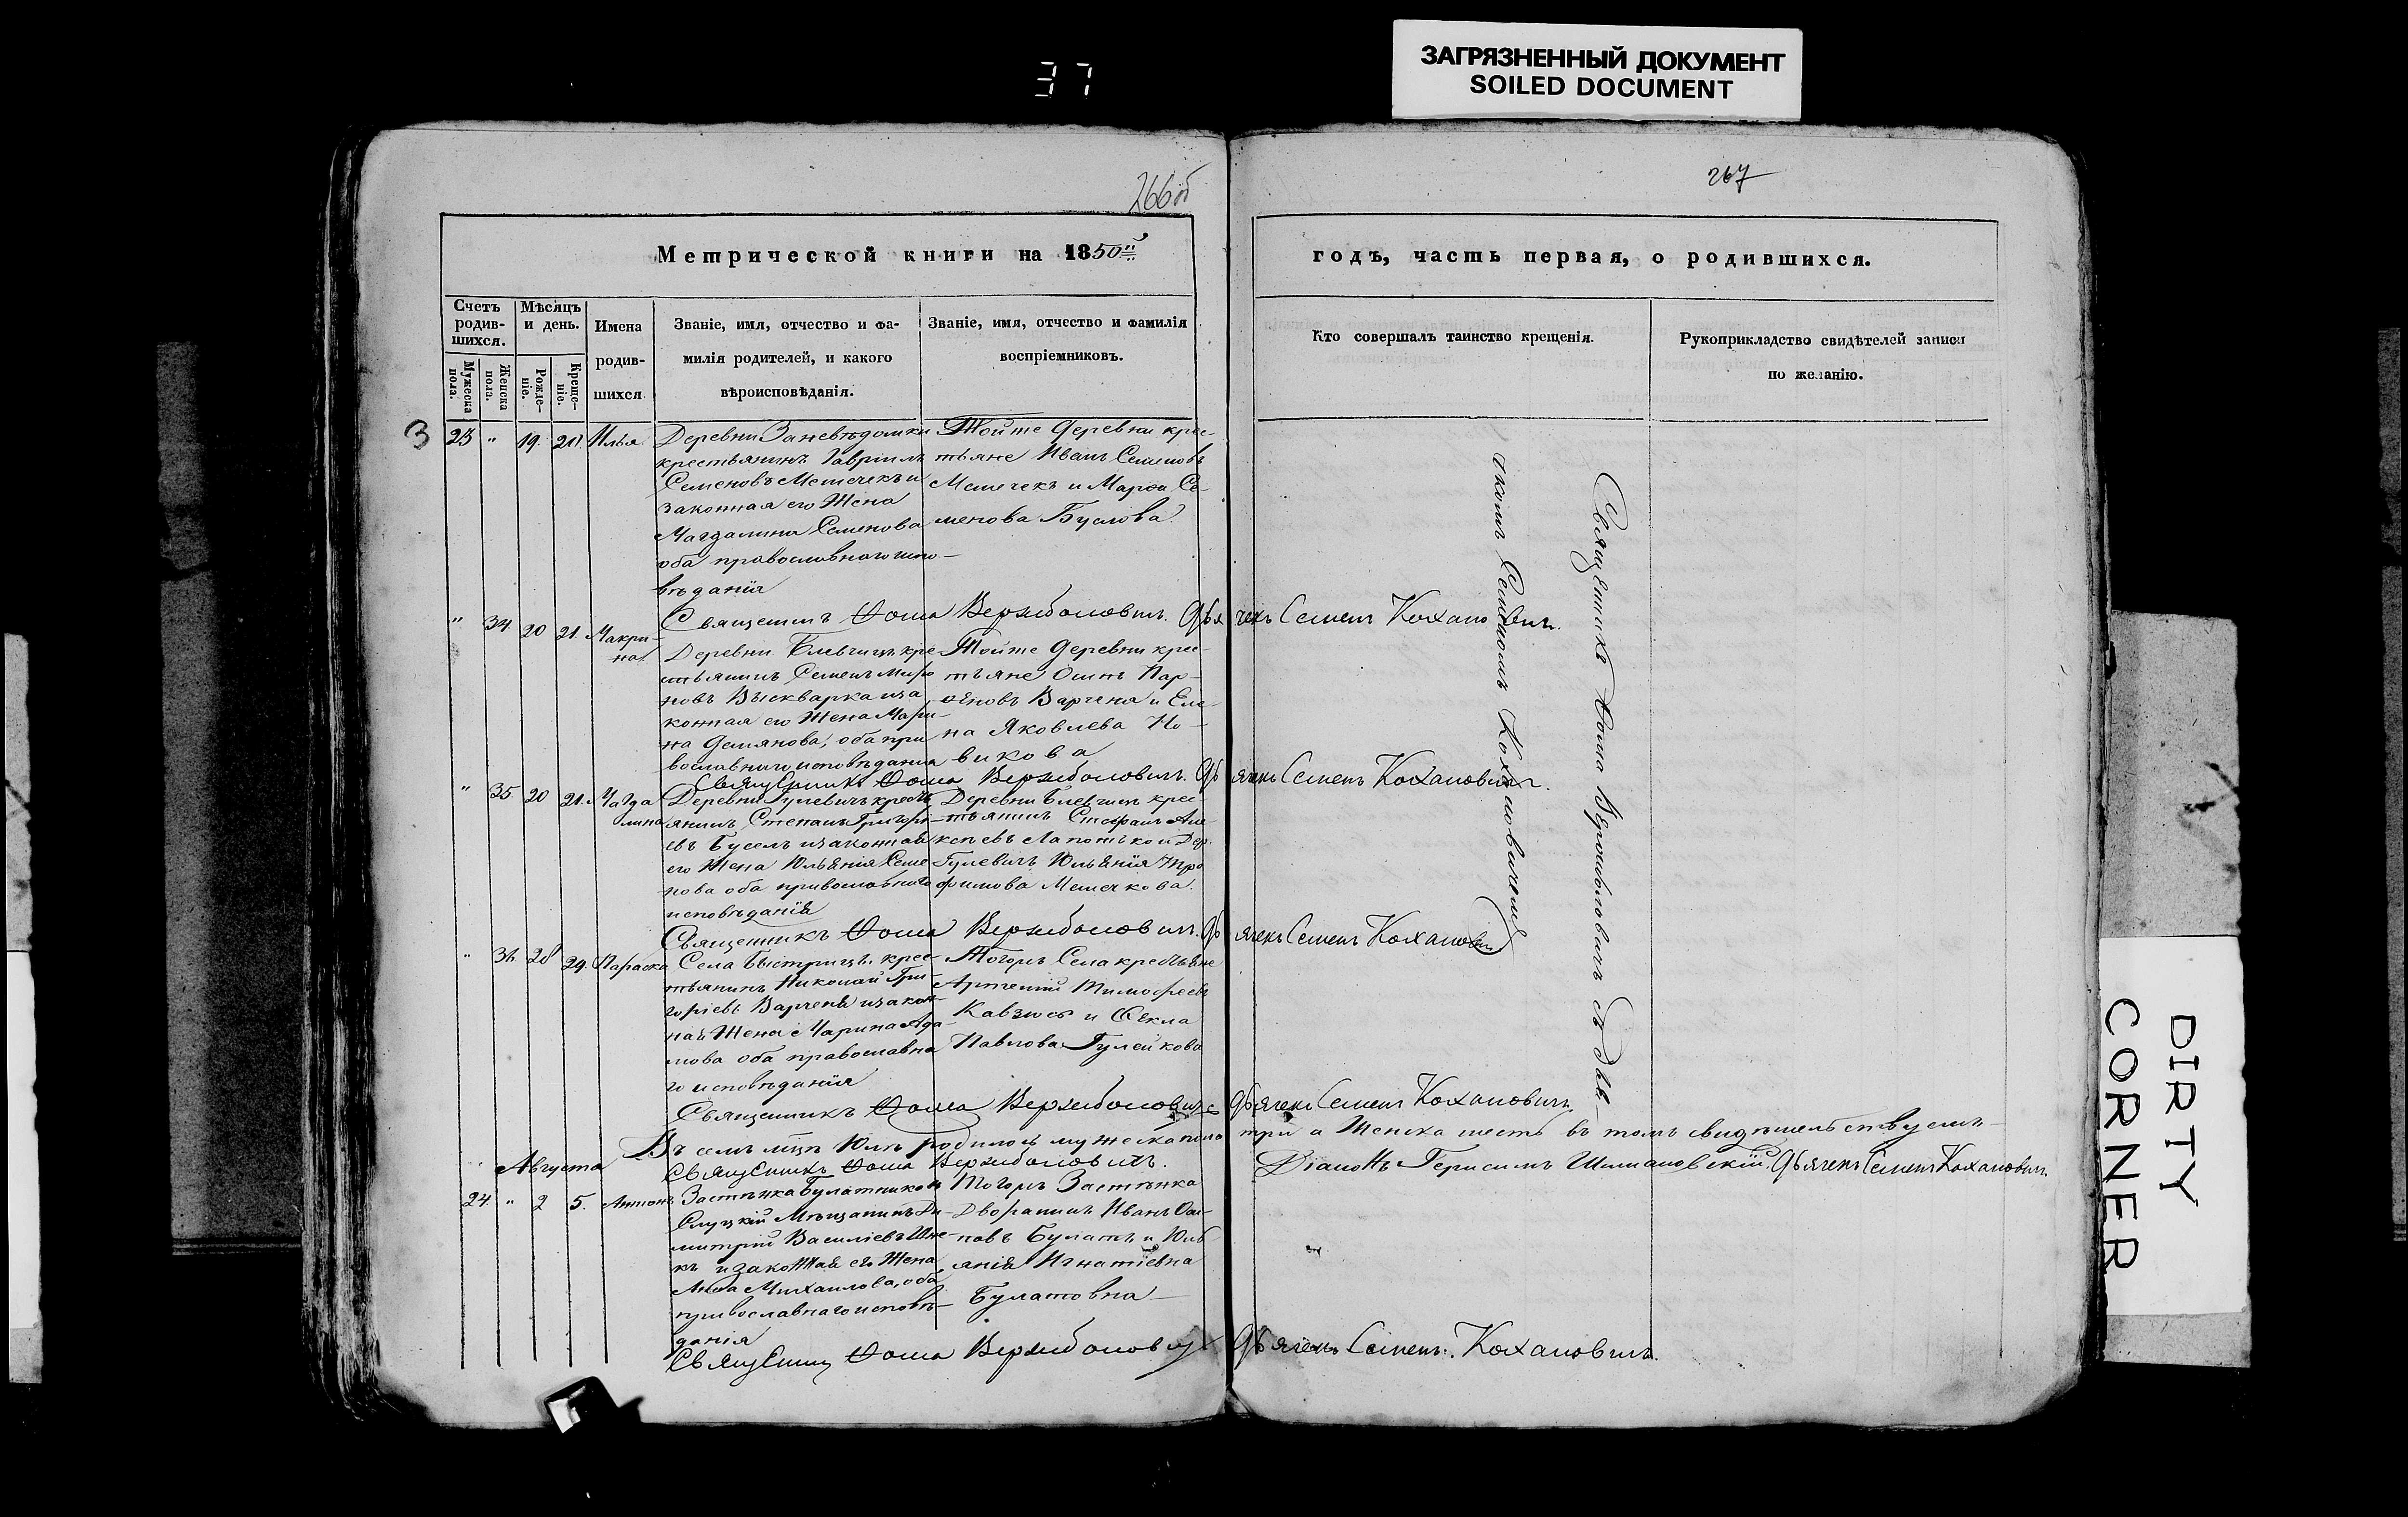 ЗАГРЯЗНЕННЫЙ ДОКУМЕНТ
SOILED DOCUMENT
37
266об
267
Метрической книги на 1850й
годъ, часть первая, о родившихся.
Счетъ родив-шихся.
Мужеска пола.
Женска пола.
Мѣсяцъ и день.
Рожде-ніе.
Креще-ніе.
Имена родив-шихся.
Званіе, имя, отчество и фа-
милія родителей, и какого
вѣроисповѣданія.
Званіе, имя, отчество и фамилія
воспріемниковъ.
Кто совершалъ таинство крещенія.
Рукоприкладство свидѣтелей записи
по желанію.
3
23 " 19. 20. Илья
Деревни Заневѣдомки
крестьянинъ Гавріилъ
Семеновъ Мешечекъ и
законная его Жена
Магдалина Семенова
оба православнаго испо-
вѣданія
Тойже деревни крес-
тьяне Иванъ Семеновъ
Мешечекъ и Марѳа Се-
менова Буслова.
Священникъ Ѳома Вержболовичъ. Дьячекъ Семенъ Кохановичъ.
" 34 20 21. Макри-
на
Деревни Блевчицъ кре-
стьянинъ Семенъ Миро
новъ Выскварка и за
конная его Жена Мари-
на Демянова, оба пра
вославнаго исповѣданія
Тойже деревни крес-
тьяне Осипъ Пар-
ѳеновъ Варчена и Еле-
на Яковлева Но-
викова
Священникъ Ѳома Вержболовичъ. Дьячекъ Семенъ Кохановичъ.
" 35 20 21. Магда
лина
Деревни Гулевичъ кресть
янинъ Степанъ Григорь
евъ Буселъ и законная
его Жена Юльянія Семе
нова оба православнаго
исповѣданія
Деревни Блевчицъ крес-
тьянинъ Стефанъ Але
ксѣевъ Лапотько и Дер.
Гулевичъ Юльянія Тро
фимова Мешечкова.
Священникъ Ѳома Вержболовичъ. Дьячекъ Семенъ Кохановичъ
" 36 28 29. Параска
Села Быстрицъ крес-
тьянинъ Николай Гри-
горіевъ Варчена и закон
ная Жена Марина Ада
мова оба православна
го исповѣданія
Тогожъ Села крестьяне
Артемій Тимофеевъ
и Ѳекла
Павлова Гулейкова
Священникъ Ѳома Вержболовичъ Дьячекъ Семенъ Кохановичъ.
Въ семъ мцѣ Юлѣ родилось мужеска пола три а Женска шесть въ томъ свидѣтельствуемъ
Священникъ Ѳома Вержболовичъ. Діаконъ Герасимъ Шимановскій. Дьячекъ Семенъ Кохановичъ.
Августа
24. " 2 5. Антонъ
Застѣнка Булатниковъ
Слуцкій Мѣщанинъ Ди-
митрій Василіевъ
и законная его Жена
Анна Михаилова, оба
православнаго исповѣ-
данія
Тогожъ Застѣнка
Дворанинъ Иванъ Оси-
повъ Булатъ и Юль
янія Игнатіевна
Булатовна
Священникъ Ѳома Вержболовичъ Дьячекъ Семенъ Кохановичъ.
Священникъ Ѳома Вержболовичъ съ Дья-
чкомъ Семіономъ Кохановичемъ
DIRTY
CORNER